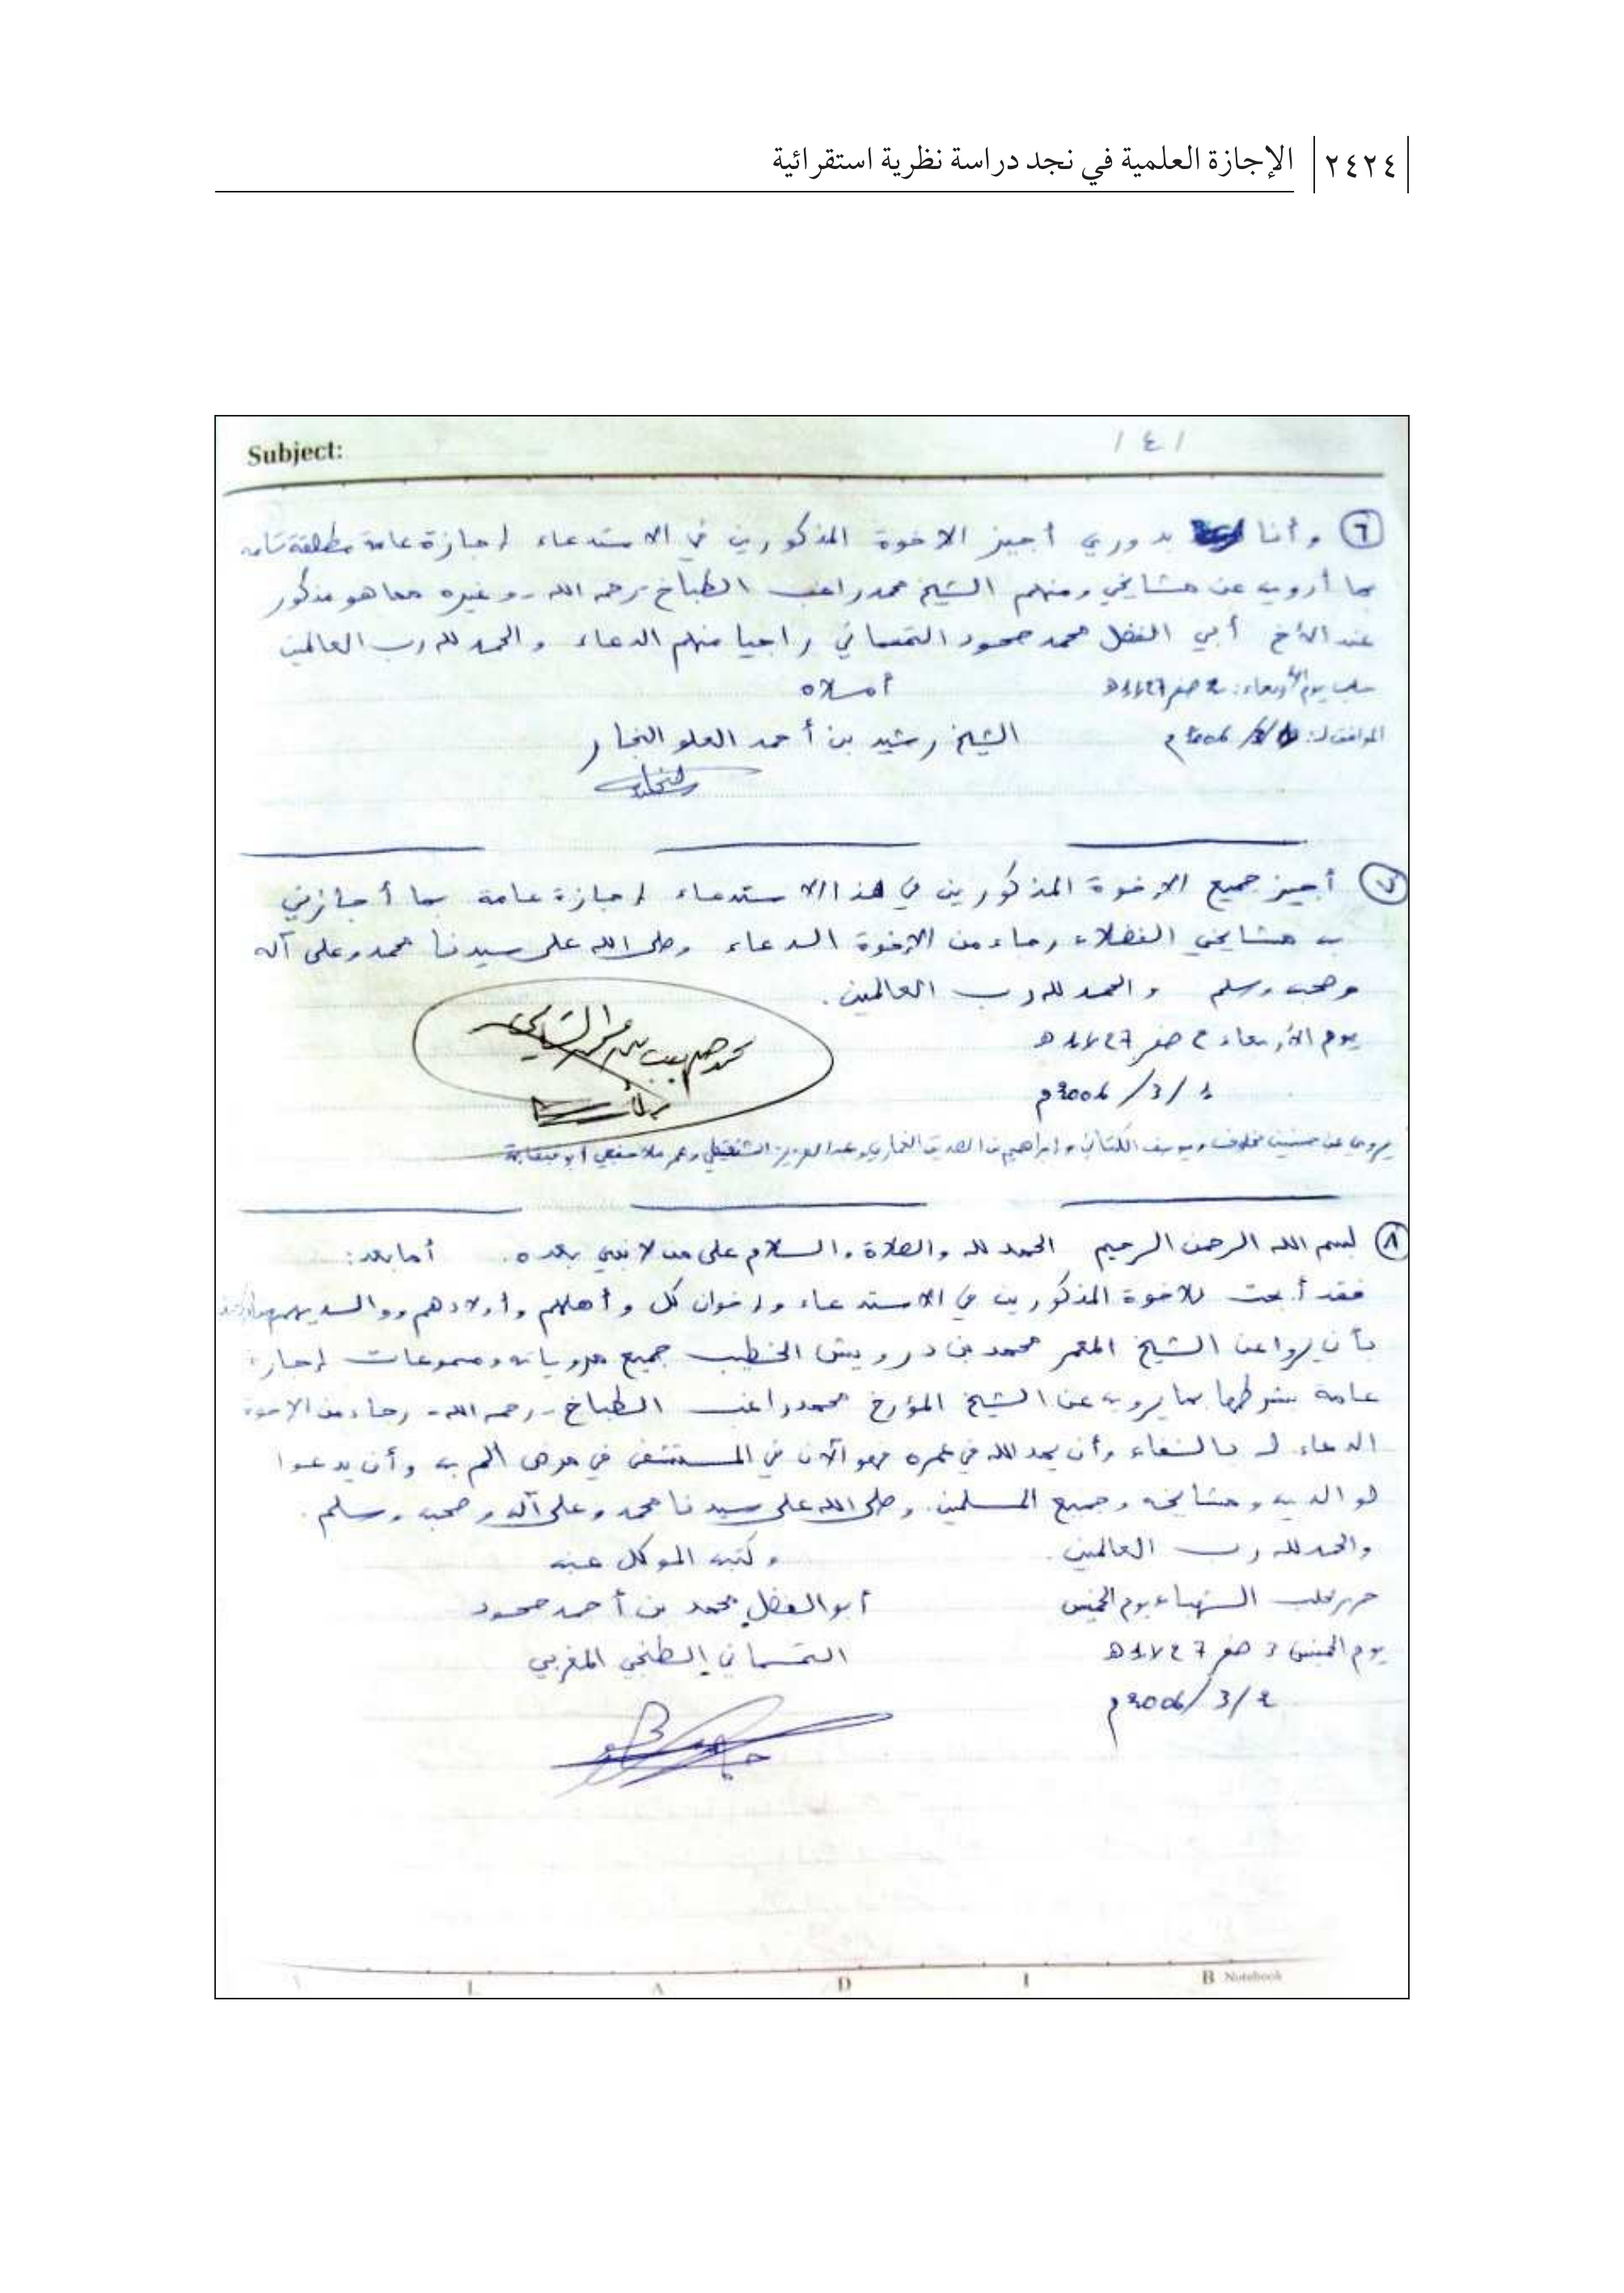 ٢٤٢٤ الإجازة العلمية في نجد دراسة نظرية استقرائية
Subject:
١٤١
٦ وأنا بدوري أجيز الاخوة المذكورين في الاستدعاء إجازة عامة مطلقة تامة
بما أرويه عن مشايخي ومنهم الشيخ محمد راغب الطباخ - رحمه الله - وغيره مما هو مذكور
عند الأخ أبي الفضل محمد محمود التمسماني راجيا منهم الدعاء والحمد لله رب العالمين
حلب يوم الأربعاء: 2 صفر 1427ه أملاه
الموافق لـ: 2006م الشيخ رشيد بن أحمد العلو النجار
٧ أجيز جميع الإخوة المذكورين في هذا الاستدعاء إجازة عامة بما أجازني
به مشايخي الفضلاء رجاء من الإخوة الدعاء وصلى الله على سيدنا محمد وعلى آله
وصحبه وسلم والحمد لله رب العالمين.
يوم الأربعاء 2 صفر 1427ه
1/3/2006م
محمد صهيب بن محمد الشامي
يروي عن حسنين مخلوف ويوسف الكتاني وإبراهيم بن الصديق الغماري وعبد العزيز الشنقيطي وعمر ملا حفجي
٨ بسم الله الرحمن الرحيم الحمد لله والصلاة والسلام على من لا نبي بعده. أما بعد:
فقد أبحت للاخوة المذكورين في الاستدعاء وإخوان كل وأهلهم وأولادهم ووالديهم
بأن يروا عن الشيخ المعمر محمد بن درويش الخطيب جميع مروياته ومسموعاته إجازة
عامة بشرطها بما يرويه عن الشيخ المؤرخ محمد راغب الطباخ - رحمه الله - رجاء من الاخوة
الدعاء له بالشفاء وأن يمد الله في عمره فهو الآن في المستشفى في مرض ألم به وأن يدعوا
لوالديه ومشايخه وجميع المسلمين. وصلى الله على سيدنا محمد وعلى آله وصحبه وسلم.
والحمد لله رب العالمين. وكتبه الموكل عنه
حرر بحلب الشهباء يوم الخميس أبو الفضل محمد بن أحمد محمود
يوم الخميس 3 صفر 1427ه التمسماني الطنجي المغربي
2/3/2006م
L A D I B Notebook